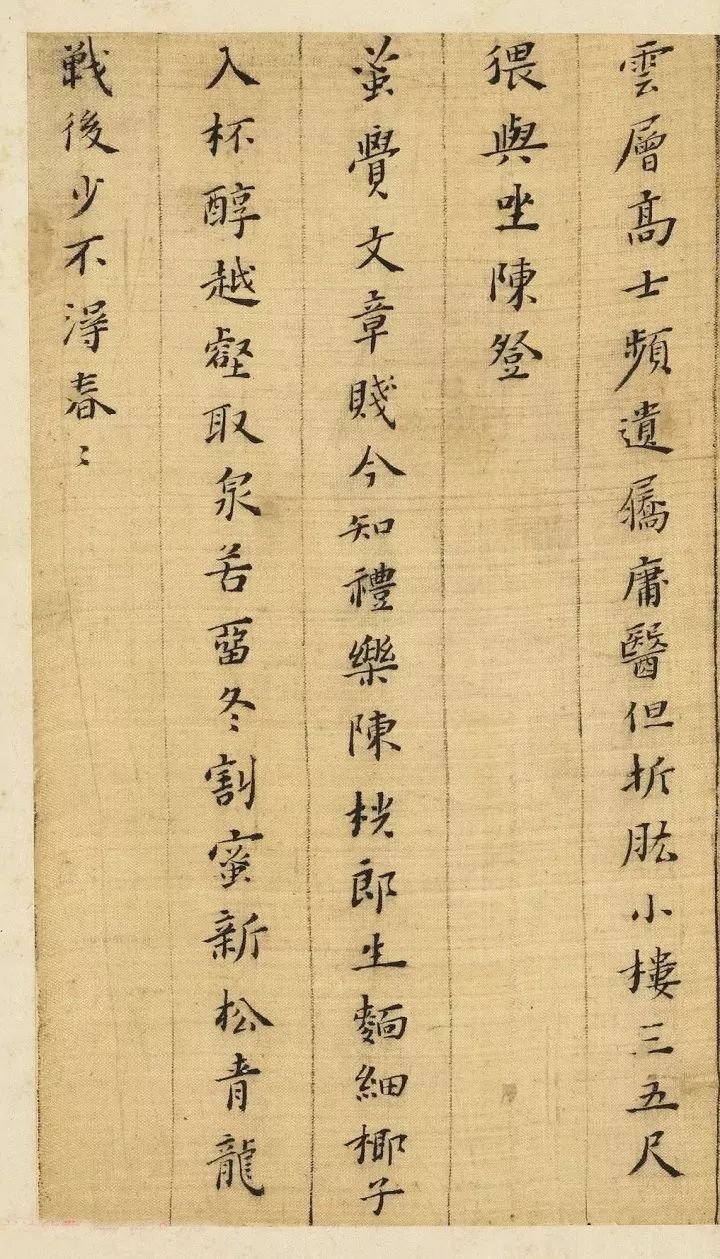 雲層高士頻遺屩庸醫但折肱小樓三五尺
猥與坐陳登
蚤覺文章賤今知禮樂陳桄郎生麵細椰子
入杯醇越壑取泉若畱冬割蜜新松青龍
戰後少不得春〻